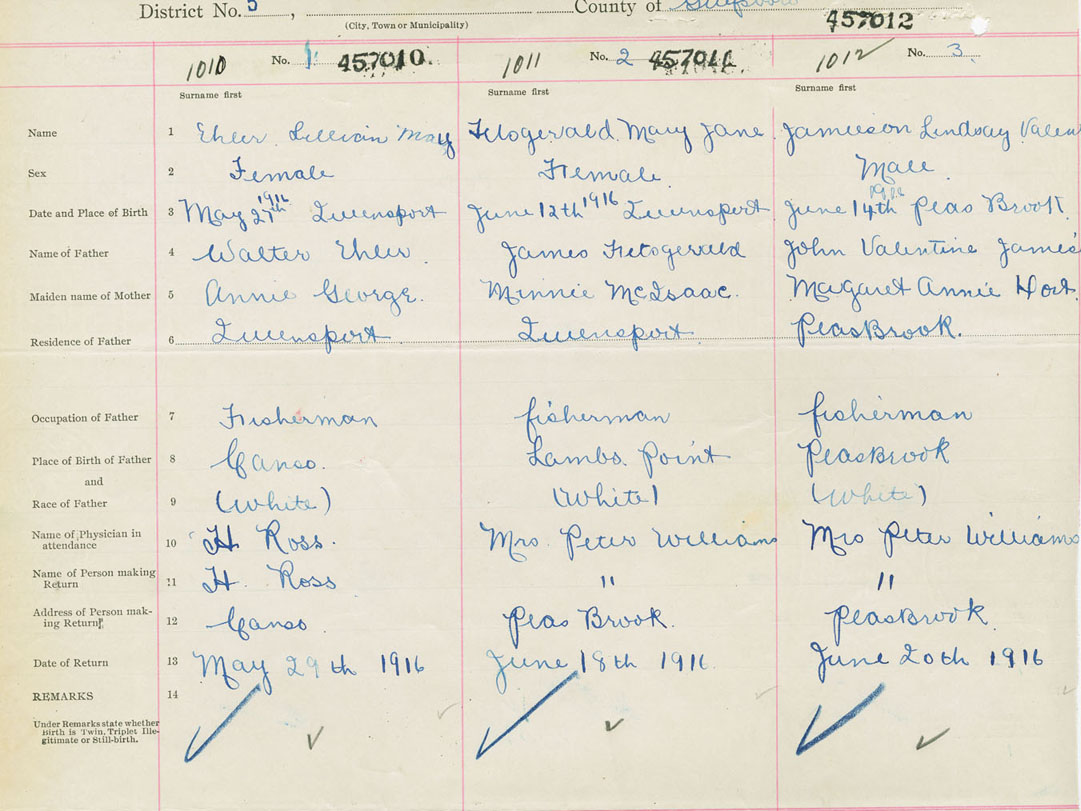 District No. 5, County of
(City, Town or Municipality)
457012
1010 No. 1 457010. 1011 No. 2 457011 1012 No. 3
Surname first Surname first Surname first
Name 1 Ehler Lillian May Fitzgerald Mary Jane Jamieson Lindsay Valen
Sex 2 Female Female. Male.
Date and Place of Birth 3 May 27th 1916 Queensport June 12th 1916 Queensport June 14th 1916 Peas Brook.
Name of Father 4 Walter Ehler. James Fitzgerald John Valentine James
Maiden name of Mother 5 Annie George. Minnie McIsaac. Margaret Annie
Residence of Father 6 Queensport Queensport PeasBrook.
Occupation of Father 7 Fisherman fisherman fisherman
Place of Birth of Father 8 Canso. Lambs. Point PeasBrook
and
Race of Father 9 (White) (White) (White)
Name of Physician in
attendance 10 H Ross. Mrs. Peter Williams Mrs Peter Williams
Name of Person making
Return 11 H. Ross " "
Address of Person mak-
ing Return 12 Canso. Peas Brook. PeasBrook.
Date of Return 13 May 29th 1916 June 18th 1916. June 20th 1916
REMARKS 14
Under Remarks state whether
Birth is Twin, Triplet Ille-
gitimate or Still-birth.